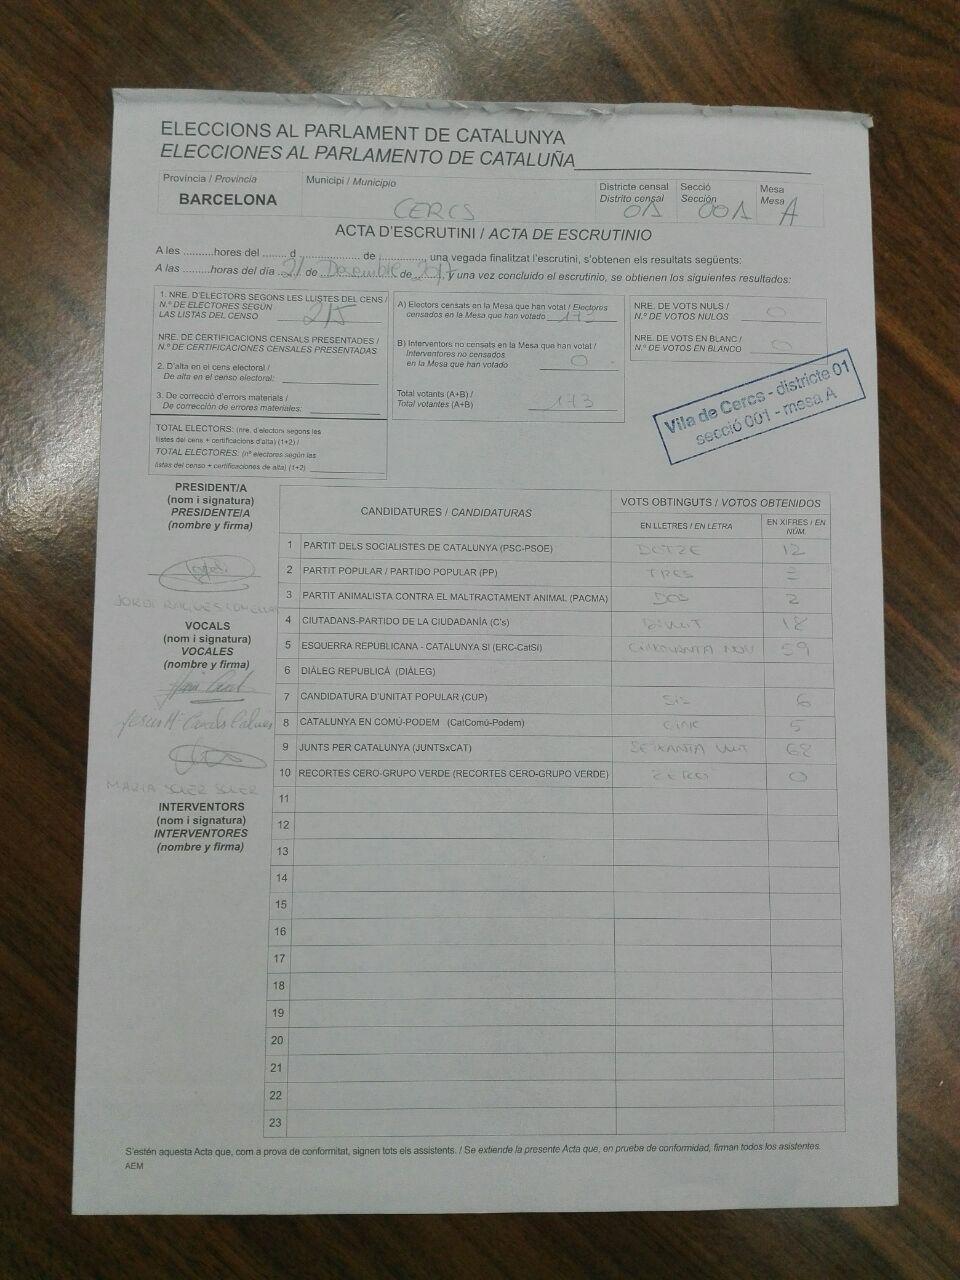 ELECCIONS AL PARLAMENT DE CATALUNYA
ELECCIONES AL PARLAMENTO DE CATALUÑA
Provincia / Provincia
BARCELONA
Municipi / Municipio
CERCS
Districte censal
Distrito censal
01
Secció
Sección
001
Mesa
Mesa
A
ACTA D'ESCRUTINI / ACTA DE ESCRUTINIO
A les ..........hores del ........ d ................... de ............, una vegada finalitzat l'escrutini, s'obtenen els resultats següents:
A las .........horas del día 21 de Desembre de 2017 y una vez concluido el escrutinio, se obtienen los siguientes resultados:
1. NRE. D'ELECTORS SEGONS LES LLISTES DEL CENS /
N.º DE ELECTORES SEGÚN
LAS LISTAS DEL CENSO 215
NRE. DE CERTIFICACIONS CENSALS PRESENTADES /
N.º DE CERTIFICACIONES CENSALES PRESENTADAS
2. D'alta en el cens electoral /
De alta en el censo electoral:
3. De correcció d'errors materials /
De corrección de errores materiales:
TOTAL ELECTORS: (nre. d'electors segons les
llistes del cens + certificacions d'alta) (1+2) /
TOTAL ELECTORES: (nº electores según las
listas del censo + certificaciones de alta) (1+2)
A) Electors censats en la Mesa que han votat / Electores
censados en la Mesa que han votado 173
B) Interventors no censats en la Mesa que han votat /
Interventores no censados
en la Mesa que han votado 0
Total votants (A+B) /
Total votantes (A+B) 173
NRE. DE VOTS NULS /
N.º DE VOTOS NULOS 0
NRE. DE VOTS EN BLANC /
N.º DE VOTOS EN BLANCO 0
Vila de Cercs - districte 01
secció 001 - mesa A
PRESIDENT/A
(nom i signatura)
PRESIDENTE/A
(nombre y firma)
JORDI
VOCALS
(nom i signatura)
VOCALES
(nombre y firma)
MARIA SOLER SOLER
INTERVENTORS
(nom i signatura)
INTERVENTORES
(nombre y firma)
CANDIDATURES / CANDIDATURAS
VOTS OBTINGUTS / VOTOS OBTENIDOS
EN LLETRES / EN LETRA
EN XIFRES / EN NÚM.
1 PARTIT DELS SOCIALISTES DE CATALUNYA (PSC-PSOE) DOTZE 12
2 PARTIT POPULAR / PARTIDO POPULAR (PP) TRES 3
3 PARTIT ANIMALISTA CONTRA EL MALTRACTAMENT ANIMAL (PACMA) DOS 2
4 CIUTADANS-PARTIDO DE LA CIUDADANÍA (C's) DIVUIT 18
5 ESQUERRA REPUBLICANA - CATALUNYA SÍ (ERC-CatSí) CINQUANTA NOU 59
6 DIÀLEG REPUBLICÀ (DIÀLEG)
7 CANDIDATURA D'UNITAT POPULAR (CUP) SIS 6
8 CATALUNYA EN COMÚ-PODEM (CatComú-Podem) CINC 5
9 JUNTS PER CATALUNYA (JUNTSxCAT) SEIXANTA VUIT 68
10 RECORTES CERO-GRUPO VERDE (RECORTES CERO-GRUPO VERDE) ZERO 0
11
12
13
14
15
16
17
18
19
20
21
22
23
S'estén aquesta Acta que, com a prova de conformitat, signen tots els assistents. / Se extiende la presente Acta que, en prueba de conformidad, firman todos los asistentes.
AEM